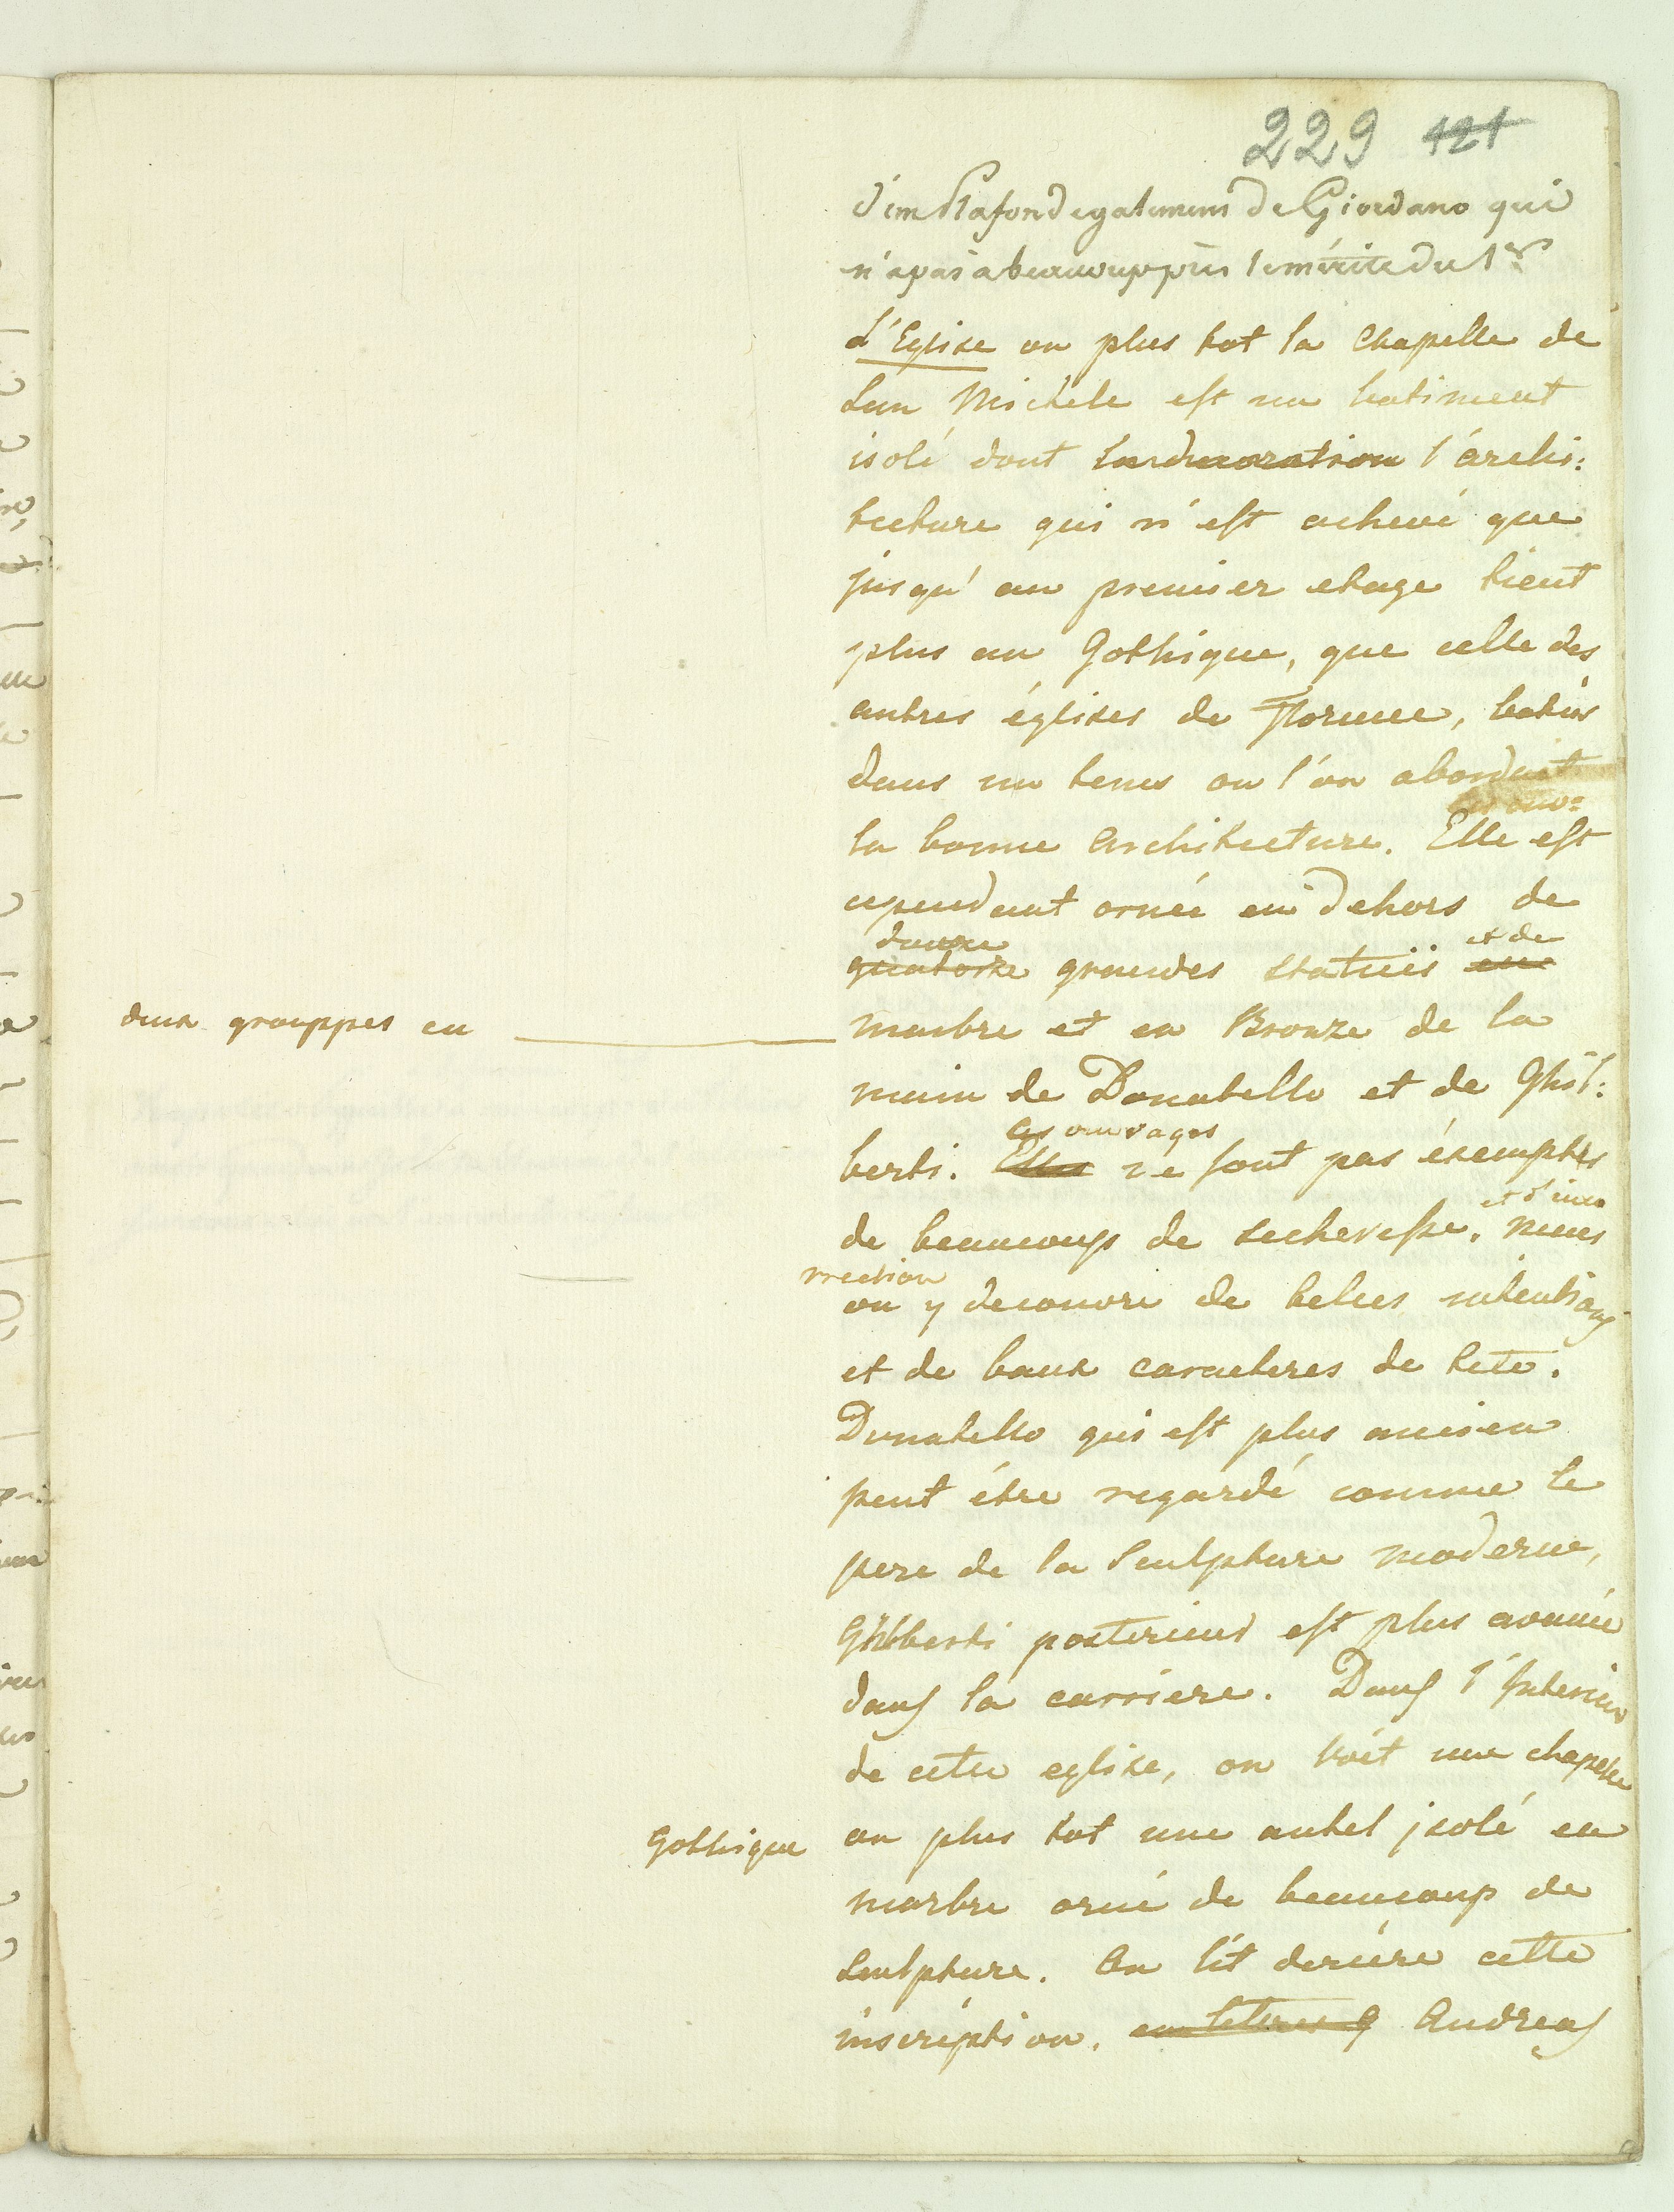 229 421
d'un Plafond egalement de Giordano qui
n'a pas a beaucoup près le mérite du 1er
L'Eglise ou plus tot la Chapelle de
San Michele est un batiment
isolé dont la decoration l'archi:
tecture qui n'est achevé que
jusqu'au premier etage tient
plus au Gothique, que celle des
autres églises de Florence, baties
dans un tems ou l'on abordait
la bonne architecture. Elle est
cependant ornée en dehors de
douze et de
quatorze grandes statuës en
deux grouppes en
marbre et en Bronze de la
main de Donatello et de Ghil:
ces ouvrages
berti. Elles ne sont pas éxemptes
et d'incor
de beaucoup de secheresse, mais
rection
on y decouvre de belles intentions
et de baux caracteres de tete.
Donatello qui est plus ancien
peut étre regardé comme le
pere de la Sculpture moderne,
Ghilberti posterieur est plus avancé
dans la carriere. Dans l'Interieur
de cette eglise, on voit une chapelle
Gothique
ou plus tot une autel isolé en
marbre orné de beaucoup de
Sculpture. On lit deriére cette
inscription. en lettres g Andreas